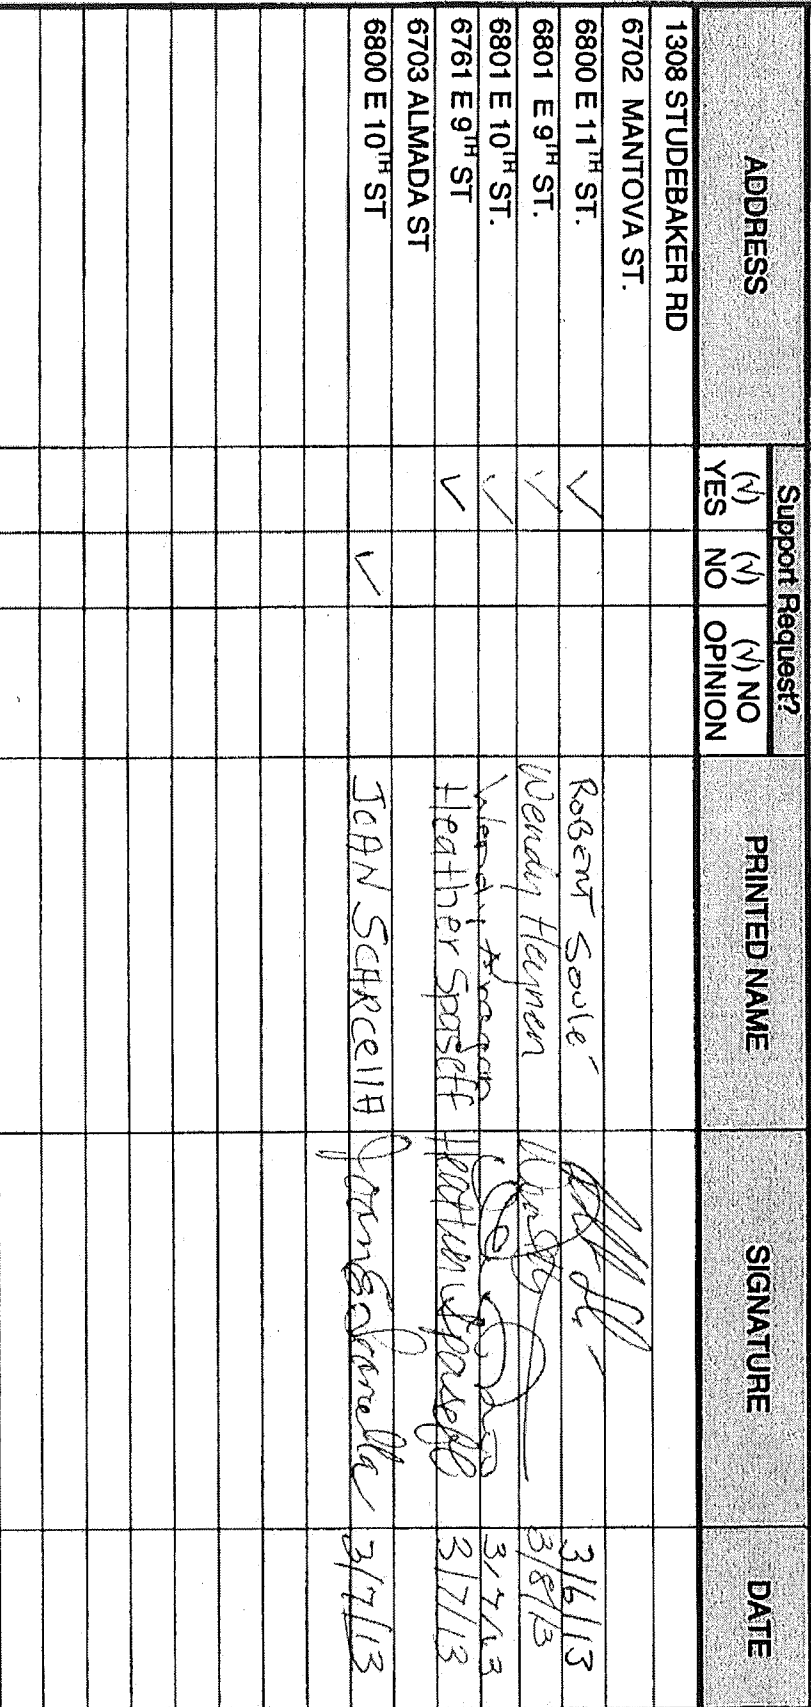 ADDRESS Support Request? PRINTED NAME SIGNATURE DATE
(√) YES (√) NO (√) NO OPINION
1308 STUDEBAKER RD
6702 MANTOVA ST.
6800 E 11TH ST. ✓ ROBERT Soulé 3/6/13
6801 E 9TH ST. ✓ Wendy Heynen 3/8/13
6801 E 10TH ST. ✓ 3/7/13
6761 E 9TH ST ✓ Heather Spaseff Heather Spaseff 3/7/13
6703 ALMADA ST
6800 E 10TH ST ✓ JOAN SCARCEllA Joan Scarcella 3/7/13